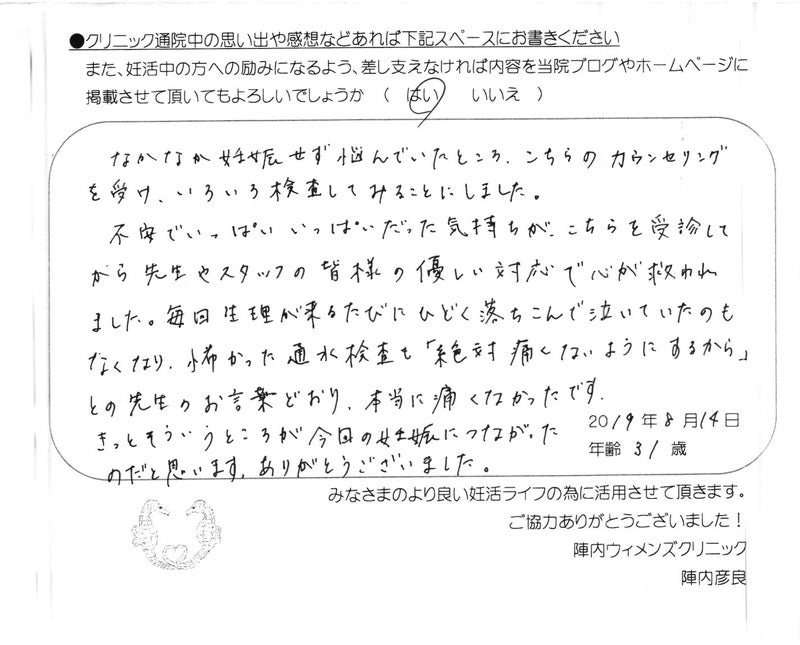 ●クリニック通院中の思い出や感想などあれば下記スペースにお書きください
また、妊活中の方への励みになるよう、差し支えなければ内容を当院ブログやホームページに
掲載させて頂いてもよろしいでしょうか （ はい　いいえ ）
なかなか妊娠せず悩んでいたところ、こちらのカウンセリング
を受け、いろいろ検査してみることにしました。
不安でいっぱいいっぱいだった気持ちが、こちらを受診して
から先生やスタッフの皆様の優しい対応で心が救われ
ました。毎回生理が来るたびにひどく落ちこんで泣いていたのも
なくなり、怖かった通水検査も「絶対痛くないようにするから」
との先生のお言葉どおり、本当に痛くなかったです.
きっとそういうところが今回の妊娠につながった
のだと思います。ありがとうございました。
2019年8月14日
年齢 31 歳
みなさまのより良い妊活ライフの為に活用させて頂きます。
ご協力ありがとうございました！
陣内ウィメンズクリニック
陣内彦良